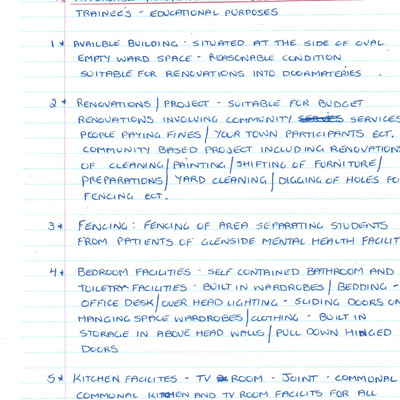 TRAINEES - EDUCATIONAL PURPOSES
1 * AVAILBLE BUILDING - SITUATED AT THE SIDE OF OVAL
EMPTY WARD SPACE - REASONABLE CONDITION
SUITABLE FOR RENOVATIONS INTO DOORMATERIES.
2 * RENOVATIONS / PROJECT - SUITABLE FOR BUDGET
RENOVATIONS INVOLVING COMMUNITY SERVICES
PEOPLE PAYING FINES / YOUR TOWN PARTICIPANTS ECT.
COMMUNITY BASED PROJECT INCLUDING RENOVATIONS
OF CLEANING / PAINTING / SHIFTING OF FURNITURE /
PREPARATIONS / YARD CLEANING / DIGGING OF HOLES FO
FENCING ECT.
3 * FENCING: FENCING OF AREA SEPARATING STUDENTS
FROM PATIENTS OF GLENSIDE MENTAL HEALTH FACILIT
4 * BEDROOM FACILITIES - SELF CONTAINED BATHROOM AND
TOILETRY FACILITIES - BUILT IN WARDROBES / BEDDING -
OFFICE DESK / OVER HEAD LIGHTING - SLIDING DOORS ON
HANGING SPACE WARDROBES / CLOTHING - BUILT IN
STORAGE IN ABOVE HEAD WALLS / PULL DOWN HINGED
DOORS
5 * KITCHEN FACILITES - TV ROOM - JOINT - COMMUNAL
COMMUNAL KITCHEN AND TV ROOM FACILITS FOR ALL